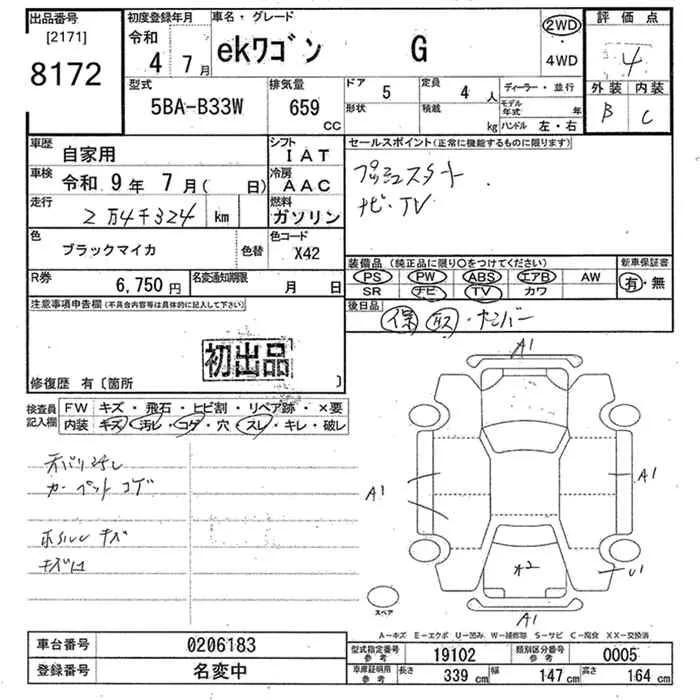 出品番号
[2171]
8172
初度登録年月
令和
4 7月
車名・グレード
ekワゴン G
2WD
・
4WD
評価点
4
外装 内装
B C
型式
5BA-B33W
排気量
659
CC
ドア 5
形状
定員 4 人
積載 kg
ディーラー・並行
モデル年式 年
ハンドル 左・右
車歴 自家用
シフト
IAT
車検 令和 9年 7月( 日)
冷房
AAC
走行 2万4千324 km
燃料
ガソリン
色 ブラックマイカ 色替
色コード
X42
R券 6,750円
名変通知期限 月 日
セールスポイント(正常に機能するものに限ります)
プッシュスタート
ナビ・TV
装備品(純正品に限り○をつけてください)
PS PW ABS エアB AW
SR ナビ TV カワ
新車保証書
有・無
後日品
保 取・ナンバー
注意事項申告欄(不具合内容等は具体的に記入して下さい)
初出品
修復歴 有〔箇所 〕
検査員記入欄
FW キズ・飛石・ヒビ割・リペア跡・×要
内装 キズ・汚レ・コゲ・穴・スレ・キレ・破レ
カーペットコゲ
キズ
A1
A1
A1
U1
A1
スペア
A-キズ E-エクボ U-凹み W-補修跡 S-サビ C-腐食 XX-交換済
車台番号 0206183
登録番号 名変中
型式指定番号 参考 19102
類別区分番号 参考 0005
車庫証明用 参考 長さ 339 cm 幅 147 cm 高さ 164 cm